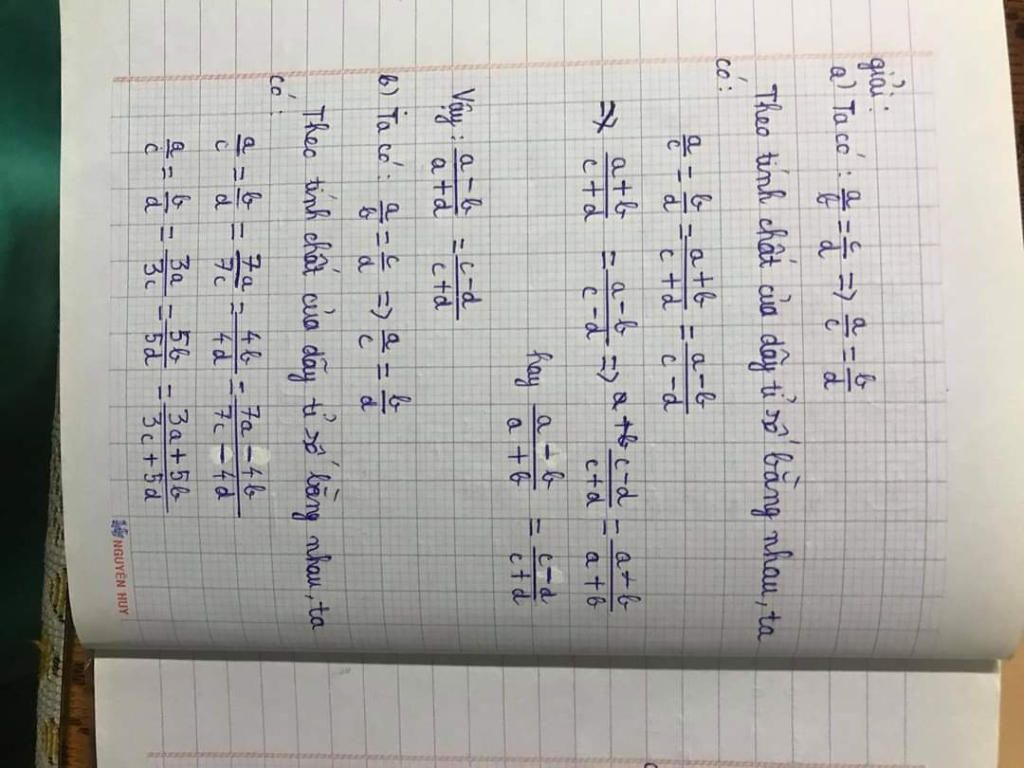 giải:
a) Ta có: a/b = c/d => a/c = b/d
Theo tính chất của dãy tỉ số bằng nhau, ta
có:
a/c = b/d = a+b/c+d = a-b/c-d
=> a+b/c+d = a-b/c-d => a+b c-d/c+d = a-b/a+b
hay a-b/a+b = c-d/c+d
Vậy: a-b/a+d = c-d/c+d
b) Ta có: a/b = c/d => a/c = b/d
Theo tính chất của dãy tỉ số bằng nhau, ta
có:
a/c = b/d = 7a/7c = 4b/4d = 7a-4b/7c-4d
a/c = b/d = 3a/3c = 5b/5d = 3a+5b/3c+5d
NGUYÊN HUY